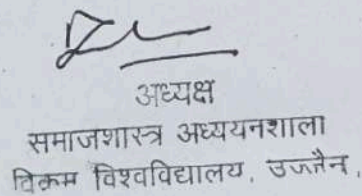 अध्यक्ष
समाजशास्त्र अध्ययनशाला
विक्रम विश्वविद्यालय, उज्जैन,